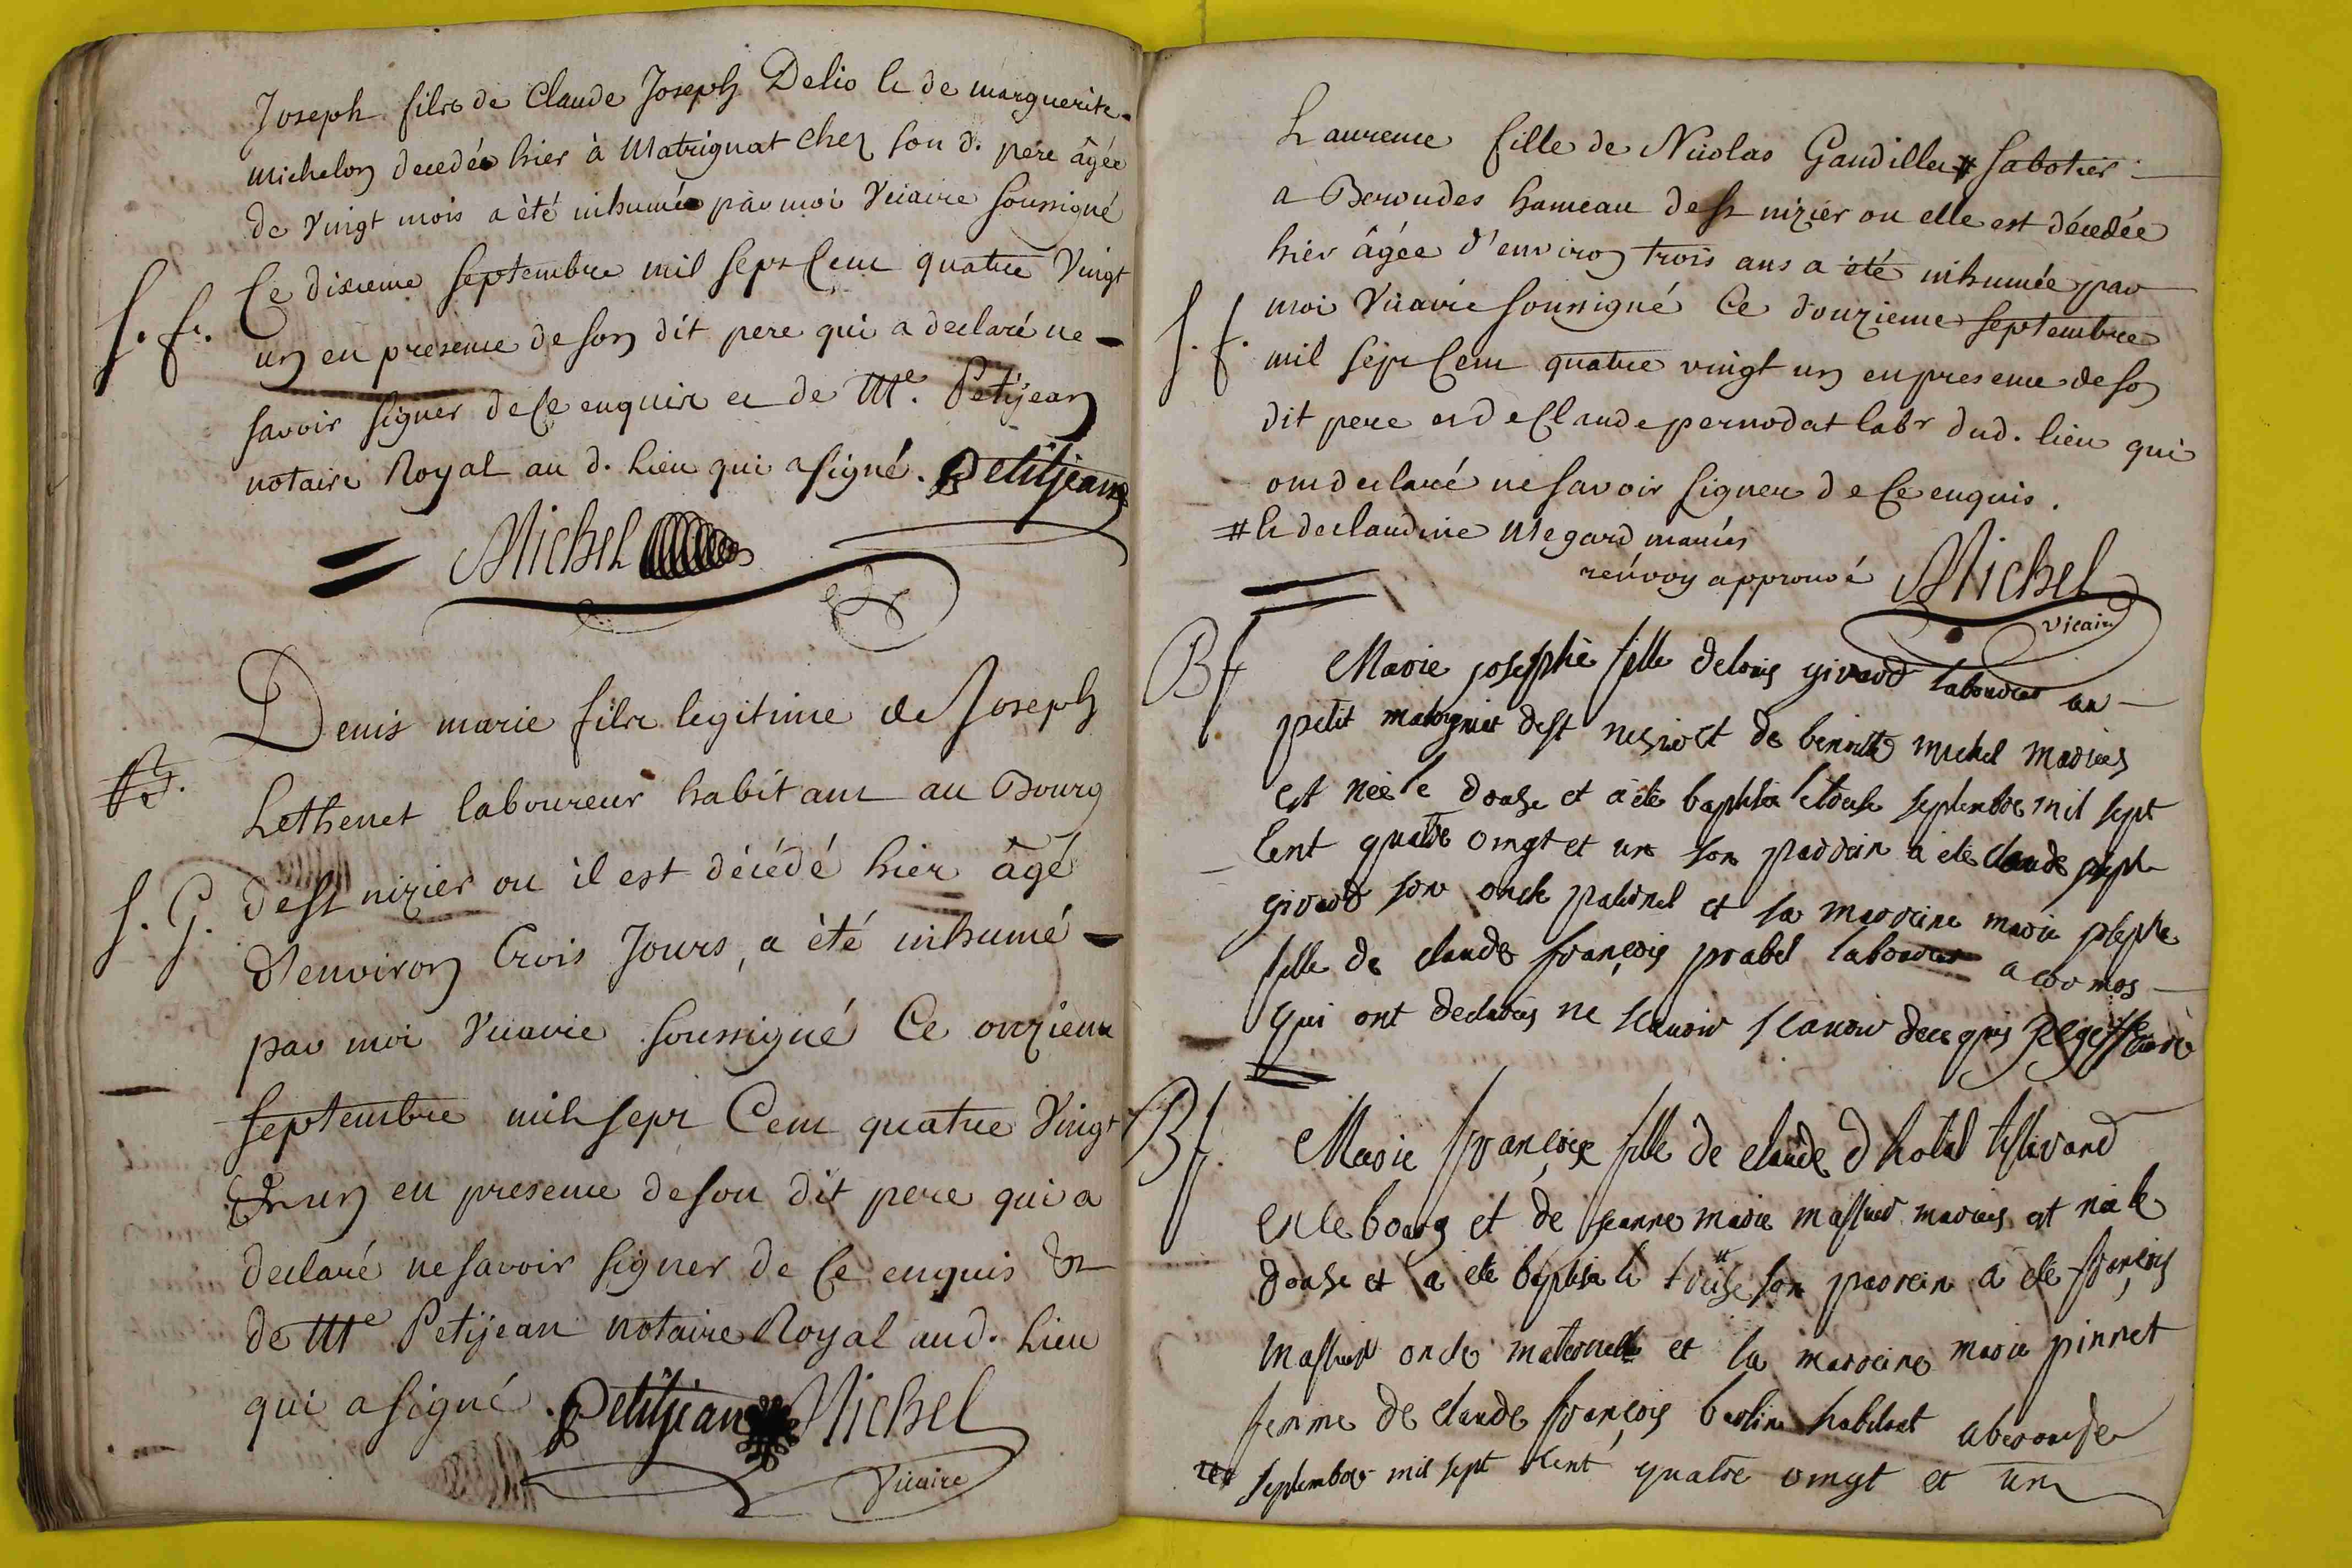 Joseph fils de Claude Joseph Delio & de marguerite
Michelon decedée hier à Matrignat chez son d. pere âgée
de vingt mois a èté inhumée par moi Vicaire soussigné
S. f. Ce dixieme septembre mil sept Cent quatre Vingt
un en presence de son dit pere qui a declaré ne
savoir signer de ce enquis et de Me. Petijean
notaire Royal au d. lieu qui a signé. Petitjean
Michel
Denis marie fils legitime de Joseph
Lethenet laboureur habitant au Bourg
S. G. de st nizier ou il est décédé hier âgé
d'environ trois Jours, a èté inhumé
par moi Vicaire soussigné Ce onzieme
septembre mil sept Cent quatre Vingt
& un en presence de son dit pere qui a
declaré ne savoir signer de ce enquis &
de Me Petijean notaire Royal aud. lieu
qui a signé. Petitjean Michel
Vicaire
Laurence fille de Nicolas Gaudiller # sabotier
a Beroudes hameau de st nizier ou elle est décedée
hier âgée d'environ trois ans a èté inhumée par
S. f. moi Vicaire soussigné Ce douzieme septembre
mil sept Cent quatre vingt un en presence de son
dit pere et de Claude pernodat labr dud. lieu qui
ont declaré ne savoir signer de ce enquis.
# & de claudine Megard mariés
renvoy approuvé Michel
vicaire
Bf Marie josephe fille de louis girard laboureur au
petit matrignat de st nesier et de benoitte michel maries
est née le douse et a été baptisée le douse septembre mil sept
Cent quatre vingt et un son parrain a été claude joseph
girard son oncle paternel et sa marreine marie josephe
fille de claude françois prabel laboureur a cormos
qui ont declarés ne scavoir de ce quis
Bf. Marie françoise fille de claude d hotel tisserand
en le bourg et de jeanne marie massuer maries est née le
douse et a été baptisée le treise # son parrein a été françois
massuer oncle maternelle et la marreine marie pinnet
femme de claude françois berlin habitant a
# septembre mil sept cent quatre vingt et un